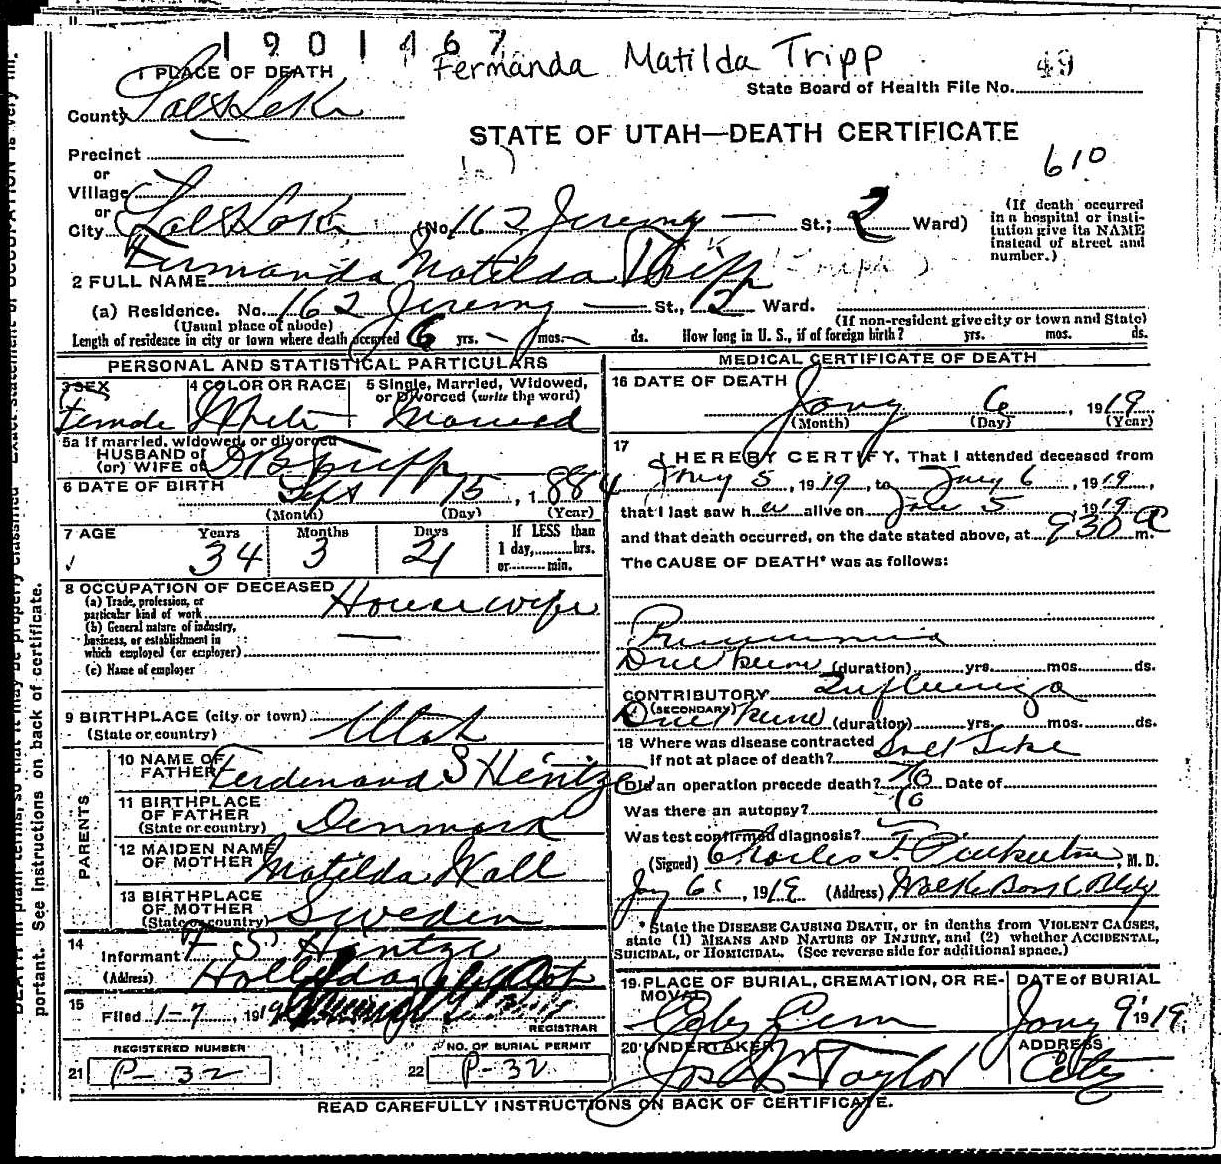 1901467
Fermanda Matilda Tripp
49
1 PLACE OF DEATH
State Board of Health File No.
County Salt Lake
STATE OF UTAH—DEATH CERTIFICATE
Precinct
or
610
Village
or
City Salt Lake (No. 162 Jeremy — St.; 2 Ward)
(If death occurred in a hospital or institution give its NAME instead of street and number.)
2 FULL NAME Fermanda Matilda Tripp
(a) Residence. No. 162 Jeremy — St., 2 Ward.
(Usual place of abode)
(If non-resident give city or town and State)
Length of residence in city or town where death occurred 6 yrs. — mos. — ds. How long in U. S., if of foreign birth? yrs. mos. ds.
PERSONAL AND STATISTICAL PARTICULARS
3 SEX Female
4 COLOR OR RACE White
5 Single, Married, Widowed, or Divorced (write the word) Married
5a If married, widowed, or divorced
HUSBAND of
(or) WIFE of Tripp
6 DATE OF BIRTH Sept 15, 1884
(Month) (Day) (Year)
7 AGE Years Months Days If LESS than
34 3 21 1 day, hrs.
or min.
8 OCCUPATION OF DECEASED
(a) Trade, profession, or particular kind of work Housewife
(b) General nature of industry, business, or establishment in which employed (or employer) —
(c) Name of employer
9 BIRTHPLACE (city or town)
(State or country) Utah
PARENTS
10 NAME OF FATHER Ferdinand S Hintze
11 BIRTHPLACE OF FATHER (State or country) Denmark
12 MAIDEN NAME OF MOTHER Matilda Wall
13 BIRTHPLACE OF MOTHER (State or country) Sweden
14 Informant F S Hintze
(Address) Holliday
15 Filed 1-7, 1919
REGISTRAR
REGISTERED NUMBER
21 P-32
NO. OF BURIAL PERMIT
22 P-32
MEDICAL CERTIFICATE OF DEATH
16 DATE OF DEATH
Jany 6, 1919
(Month) (Day) (Year)
17 I HEREBY CERTIFY, That I attended deceased from
Jany 5, 1919, to Jany 6, 1919,
that I last saw her alive on Jan 5, 1919
and that death occurred, on the date stated above, at 930 a m.
The CAUSE OF DEATH* was as follows:
Pneumonia
(duration) yrs. mos. ds.
CONTRIBUTORY Influenza
(SECONDARY)
(duration) yrs. mos. ds.
18 Where was disease contracted Salt Lake
if not at place of death?
Did an operation precede death? No Date of
Was there an autopsy? No
Was test confirmed diagnosis?
(Signed) Charles F. Pinkerton, M. D.
Jany 6, 1919 (Address) Walker Bank Bldg
* State the DISEASE CAUSING DEATH, or in deaths from VIOLENT CAUSES,
state (1) MEANS AND NATURE OF INJURY, and (2) whether ACCIDENTAL,
SUICIDAL, or HOMICIDAL. (See reverse side for additional space.)
19 PLACE OF BURIAL, CREMATION, OR REMOVAL City Cem
DATE of BURIAL Jany 9 1919
20 UNDERTAKER Jos Wm Taylor
ADDRESS City
READ CAREFULLY INSTRUCTIONS ON BACK OF CERTIFICATE.
portant. See instructions on back of certificate.